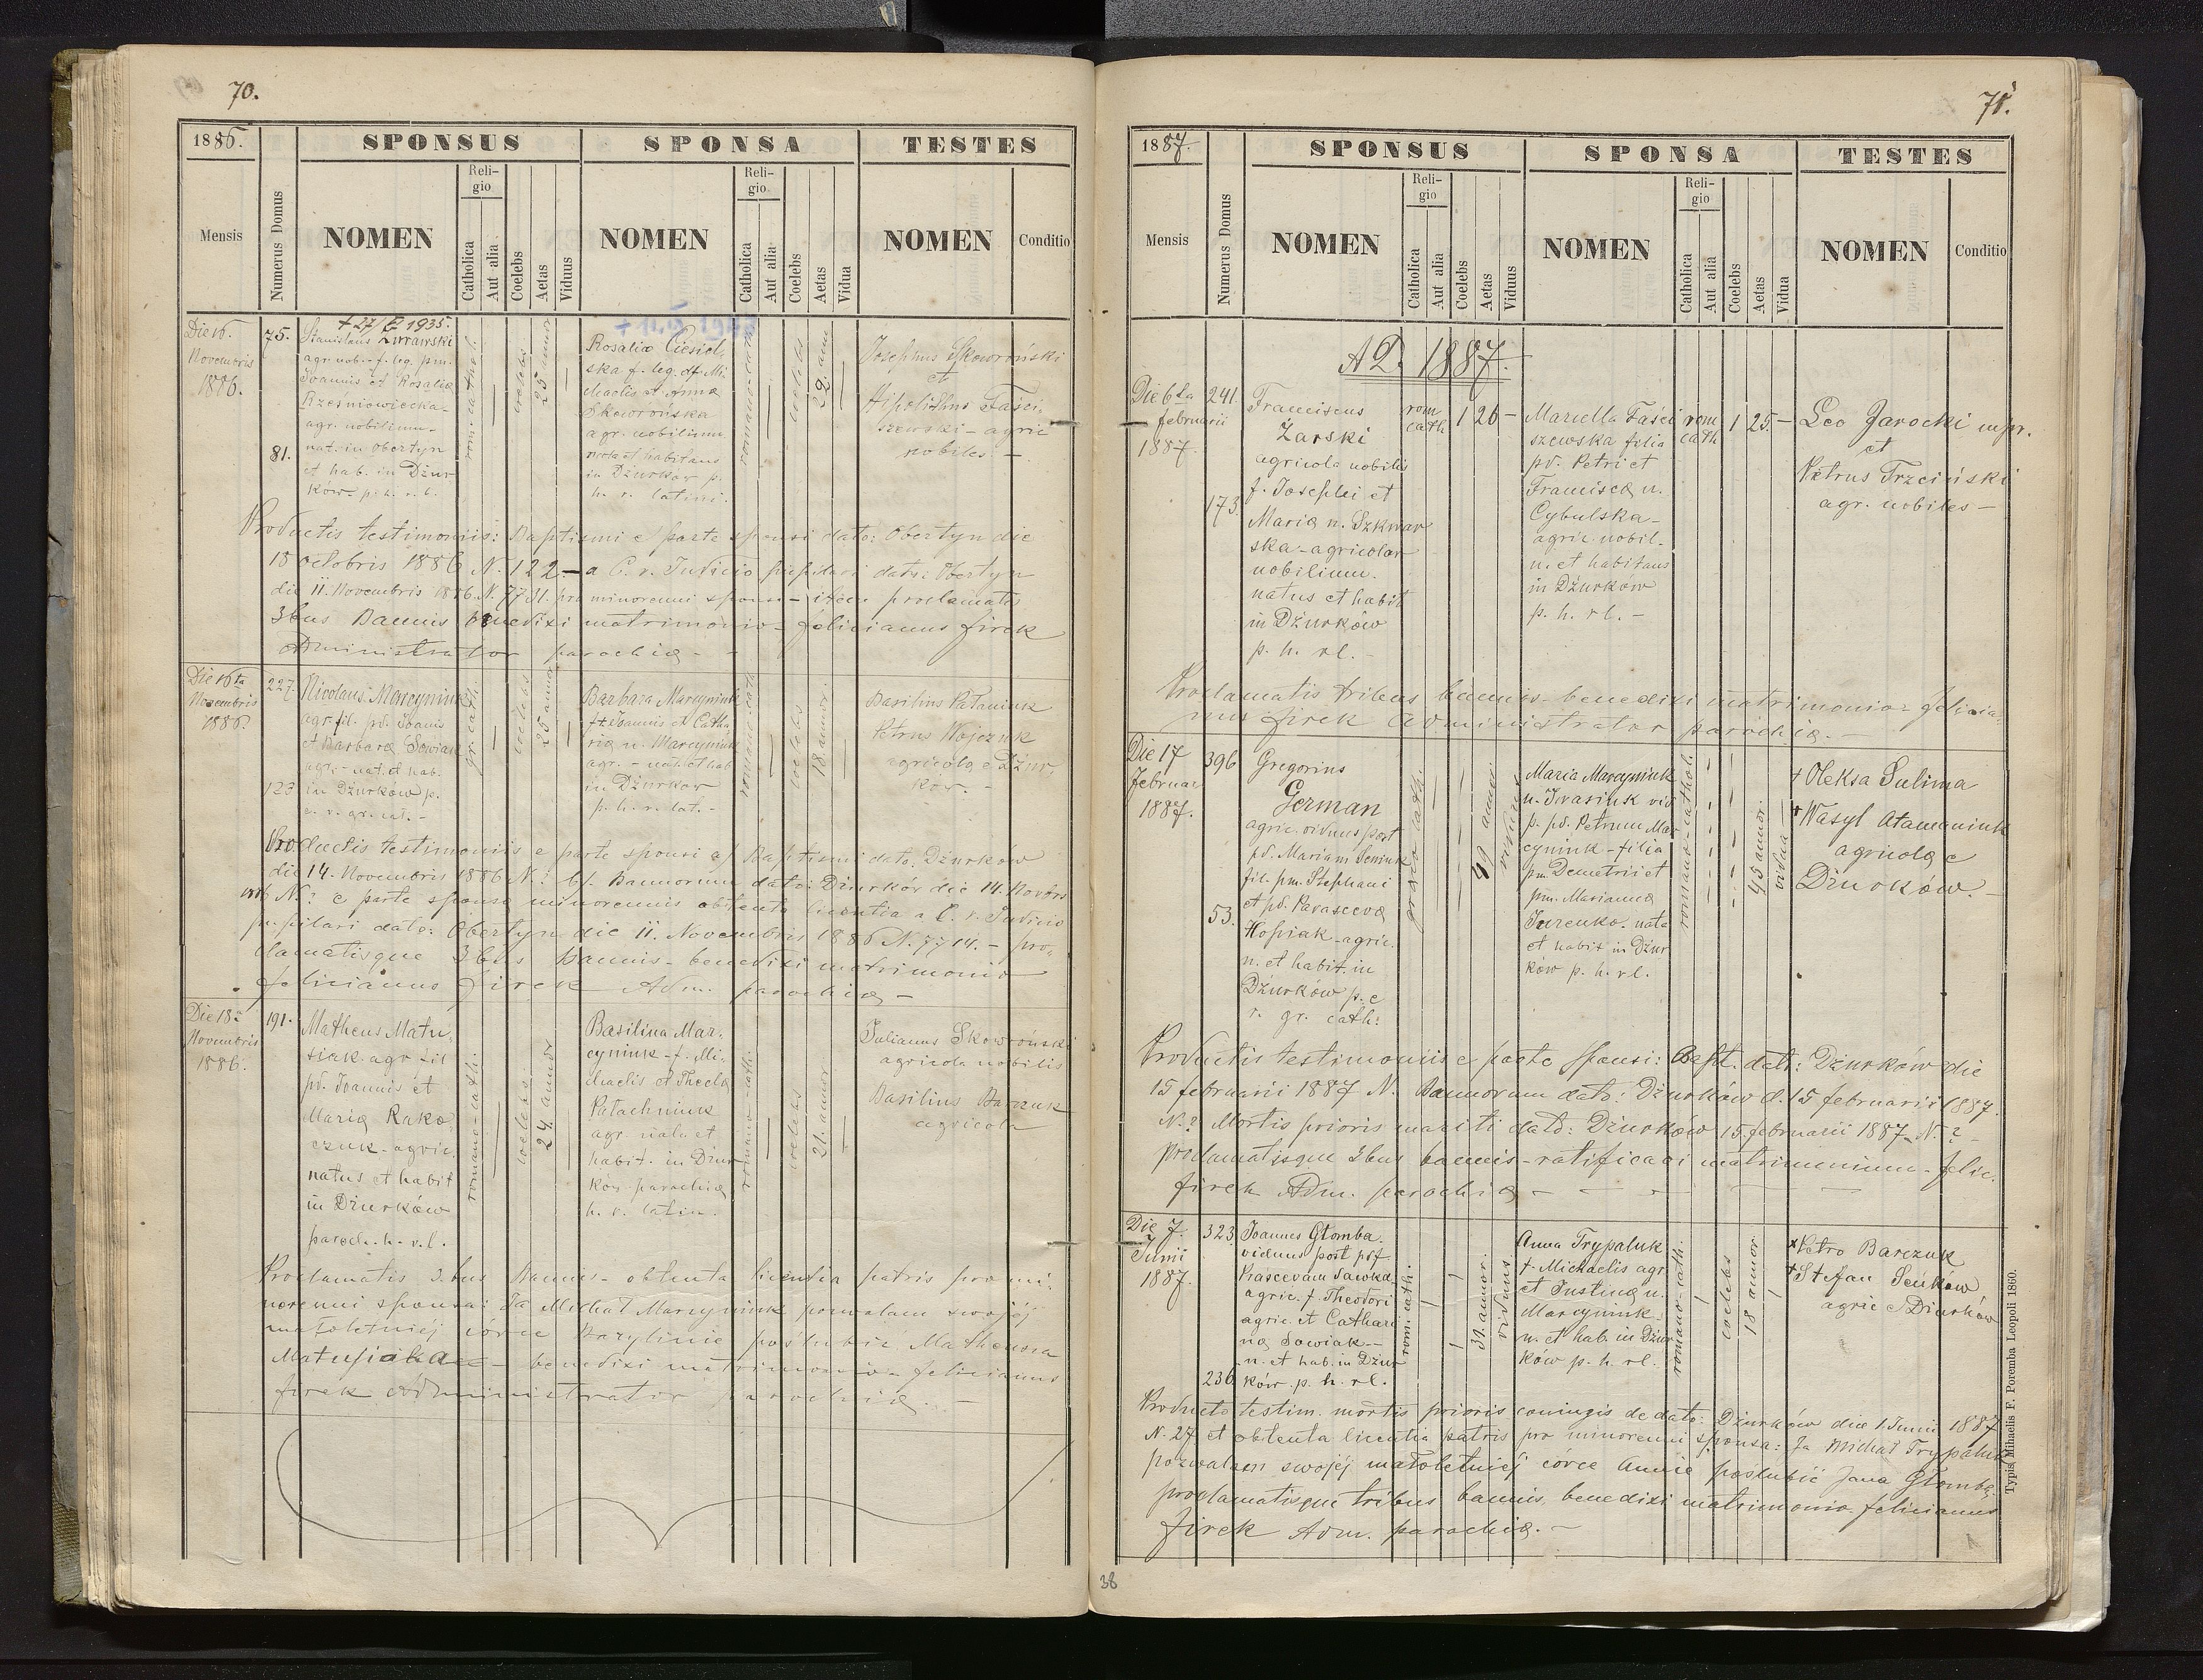 70.
1886.
SPONSUS SPONSA TESTES
Mensis
Numerus Domus
NOMEN
Religio
Catholica
Aut alia
Coelebs
Aetas
Viduus
NOMEN
Religio
Catholica
Aut alia
Coelebs
Aetas
Vidua
NOMEN
Conditio
Die 16.
Novembris
1886.
75.
81.
Stanislaus Żurawski
agr. nob. f. leg. pm.
Joannis et Rosaliæ
Rześniowiecka-
agr. nobilium-
nat. in Obertyn
et hab. in Dżur
ków- p. h. r. l.
rom. cath.
coelebs
25 annor
Rosalia Ciesiel-
ska f. leg. df. Mi
chaelis et Anna
Skworońska
agr. nobilium
nata et habitans
in Dżurkow p.
h. r. latini.
romano-cath
coelebs
Josephus Skworoński
et
Hipolithus Faści-
szewski - agric
nobiles -
Productis testimoniis: Baptismi e parte sponsi dato: Obertyn die
18 octobris 1886 N. 122 - a C. r. Judicio pupilari dato: Obertyn
die 11. Novembris 1886 N. 7731. pro minorenni sponso - item proclamatis
3bus Bannis benedixi matrimonio - felicianus firek
Administrator parochiæ - -
Die 16ta
Novembris
1886.
227.
123
Nicolaus Marcyniuk
agr. fil. pd. Joanis
et Barbaræ Sowiak
agr. - nat. et hab.
in Dżurków p.
e. r. gr. cat. -
gr. cath.
coelebs
25 annor
Barbara Marcyniuk
f. Joannis et Catha
riæ n. Marcyniuk
agr. - nat. et hab
in Dżurkow
p. h. r. lat. -
romano cath
coelebs
18 annor.
Basilius Pataniuk
Petrus Wojczuk
agricolæ e Dżur-
ków. -
Productis testimoniis e parte sponsi a/ Baptismi dato: Dżurków
die 14. Novembris 1886 N.? b/. Bannorum dato: Dżurków die 14. Novbris
1886 N.? e parte sponsæ minorennis obtenta licentia a C. r. Judicio
pupilari dato: Obertyn die 11. Novembris 1886 N. 7714. - pro-
clamatisque 3bus Bannis - benedixi matrimonio
felicianus firek Adm. parochiæ -
Die 18
Novembris
1886.
191.
Matheus Matu-
siak agr fil
pd. Joannis et
Mariæ Rako
czuk - agric.
natus et habit
in Dżurków
paroch. h. r. l.
romano-cath.
coelebs.
24 annor
Basilina Mar-
cyniuk - f. Mi-
chaelis et Theclæ
Patachniuk
agr. nata et
habit. in Dżur
ków parochiæ
h. r. latin.
romano-cath.
coelebs
21. annor
Julianus Skworoński
agricola nobilis
Basilius Barczuk
agricola
Proclamatis 3. bus Bannis - obtenta licentia patris pro mi-
norenni sponsa: Ja Michał Marcyniuk pozwalam swojéj
małoletniéj córce Bazylinie poślubić Matheusza
Matusiaka - benedixi matrimonio - felicianus
firek Administrator parochiæ. -
71.
1887.
SPONSUS SPONSA TESTES
Mensis
Numerus Domus
NOMEN
Religio
Catholica
Aut alia
Coelebs
Aetas
Viduus
NOMEN
Religio
Catholica
Aut alia
Coelebs
Aetas
Vidua
NOMEN
Conditio
A D. 1887.
Die 6ta
februarii
1887.
241.
173.
Franciscus
Zarski
agricola nobilis
f. Josephi et
Mariæ n. Szkwar
ska - agricolar
nobilium.
natus et habit
in Dżurków
p. h. rl. -
rom
cath
1 26 -
Mariella Faści
szewska filia
pd. Petri et
Franciscæ n.
Cybulska -
agric. nobil -
n. et habitans
in Dżurków
p. h. rl. -
rom
cath
1 25. -
Leo Jarocki mpr.
et
Petrus Trzciński
agr. nobiles -
Proclamatis tribus bannis - benedixi matrimonio - felicia-
nus firek administrator parochiæ. -
Die 17
Februar
1887.
396
53.
Gregorius
German
agric. viduus post
pd. Mariam Seniuk
fil. pm. Stephani
et pd. Parascevæ
Hopiak - agric.
n. et habit. in
Dżurków p. e
r. gr. cath:
græco cath.
49 annor.
viduus
Maria Marcyniuk
n. Iwasiuk vid
p. pd. Petrum Mar
cyniuk - filia
pm Demetrii et
pm. Mariannæ
Jurenko. nata
et habit in Dżur
ków p. h. rl.
romano-cathol.
45 annor.
vidua
+ Oleksa Sulima
+ Wasyl Atamaniuk
agricolæ e
Dżurków. -
Productis testimoniis e parte sponsi: Bapt. dato: Dżurków die
15 februarii 1887 N. Bannorum dato: Dżurków d. 15 februarii 1887.
N.? Mortis prioris mariti dato: Dżurków 15. februarii 1887 N.? -
proclamatisque 3bus bannis - ratificavi matrimonium - felic.
firek Adm. parochiæ - - - - -
Die 7.
Junii
1887.
323.
236.
Joannes Głomba.
viduus post pdf
Parascevam Sawka
agric. f. Theodori
agric. et Cathari
næ Sowiak -
n. et hab. in Dżur
ków. p. h. rl.
rom. cath.
31. annor.
viduus
Anna Trypaluk
f. Michaelis agr.
et Justinæ n.
Marcyniuk.
n. et hab. in Dżur
ków p. h. rl.
romano-cath.
coelebs
18 annor
+ Petro Barczuk
+ Stefan Seńków
agric e Dżurków
Producto testim. mortis prioris coniugis de dato: Dżurków die 1 Junii 1887
N. 27 et obtenta licentia patris pro minorenni sponsa: Ja Michał Trypaluk
pozwalam swojéj małoletniéj córce Annie poślubić Jana Głombę
proclamatisque tribus bannis, benedixi matrimonio felicianus
firek Adm. parochiæ. -
Typis Mihaelis F. Poremba Leopoli 1860.
38